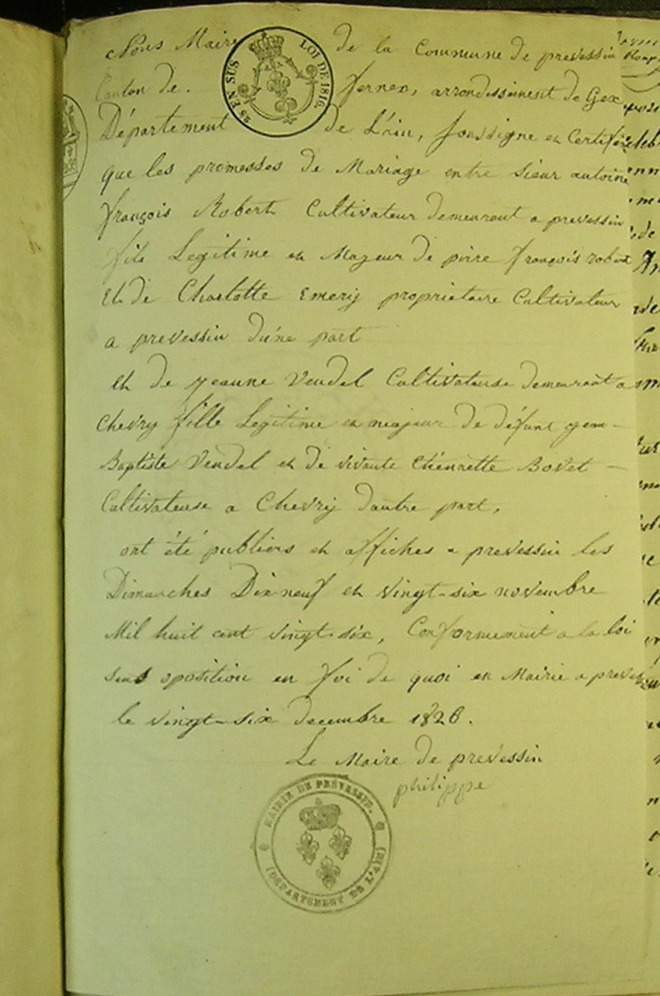 Nous Maire de la Commune de prevessin
Canton de. Fernex, arrondissement de Gex
Département de L'ain, Soussigne et Certifie
que les promesses de Mariage entre sieur antoine
françois Robert Cultivateur demeurant a prevessin
fils Legitime et Majeur de pierre françois robert
Et de Charlotte Emery propriétaire Cultivateur
a prevessin d'une part
et de jeanne Vendel Cultivateuse demeurant a
Chevry fille Legitime et majeur de défunt jean
Baptiste Vendel et de vivante Bovet
Cultivateuse a Chevry dautre part,
ont été publiers et affiches a prevessin les
Dimanches Dix neuf et vingt-six novembre
Mil huit cent vingt-six, Conformement a la loi
sans oposition en foi de quoi en Mairie a
le vingt-six decembre 1826.
Le Maire de prevessin
philippe
EN SUS LOI DE 1816.
MAIRIE DE PRÉVESSIN.
(DÉPARTEMENT DE L'AIN)